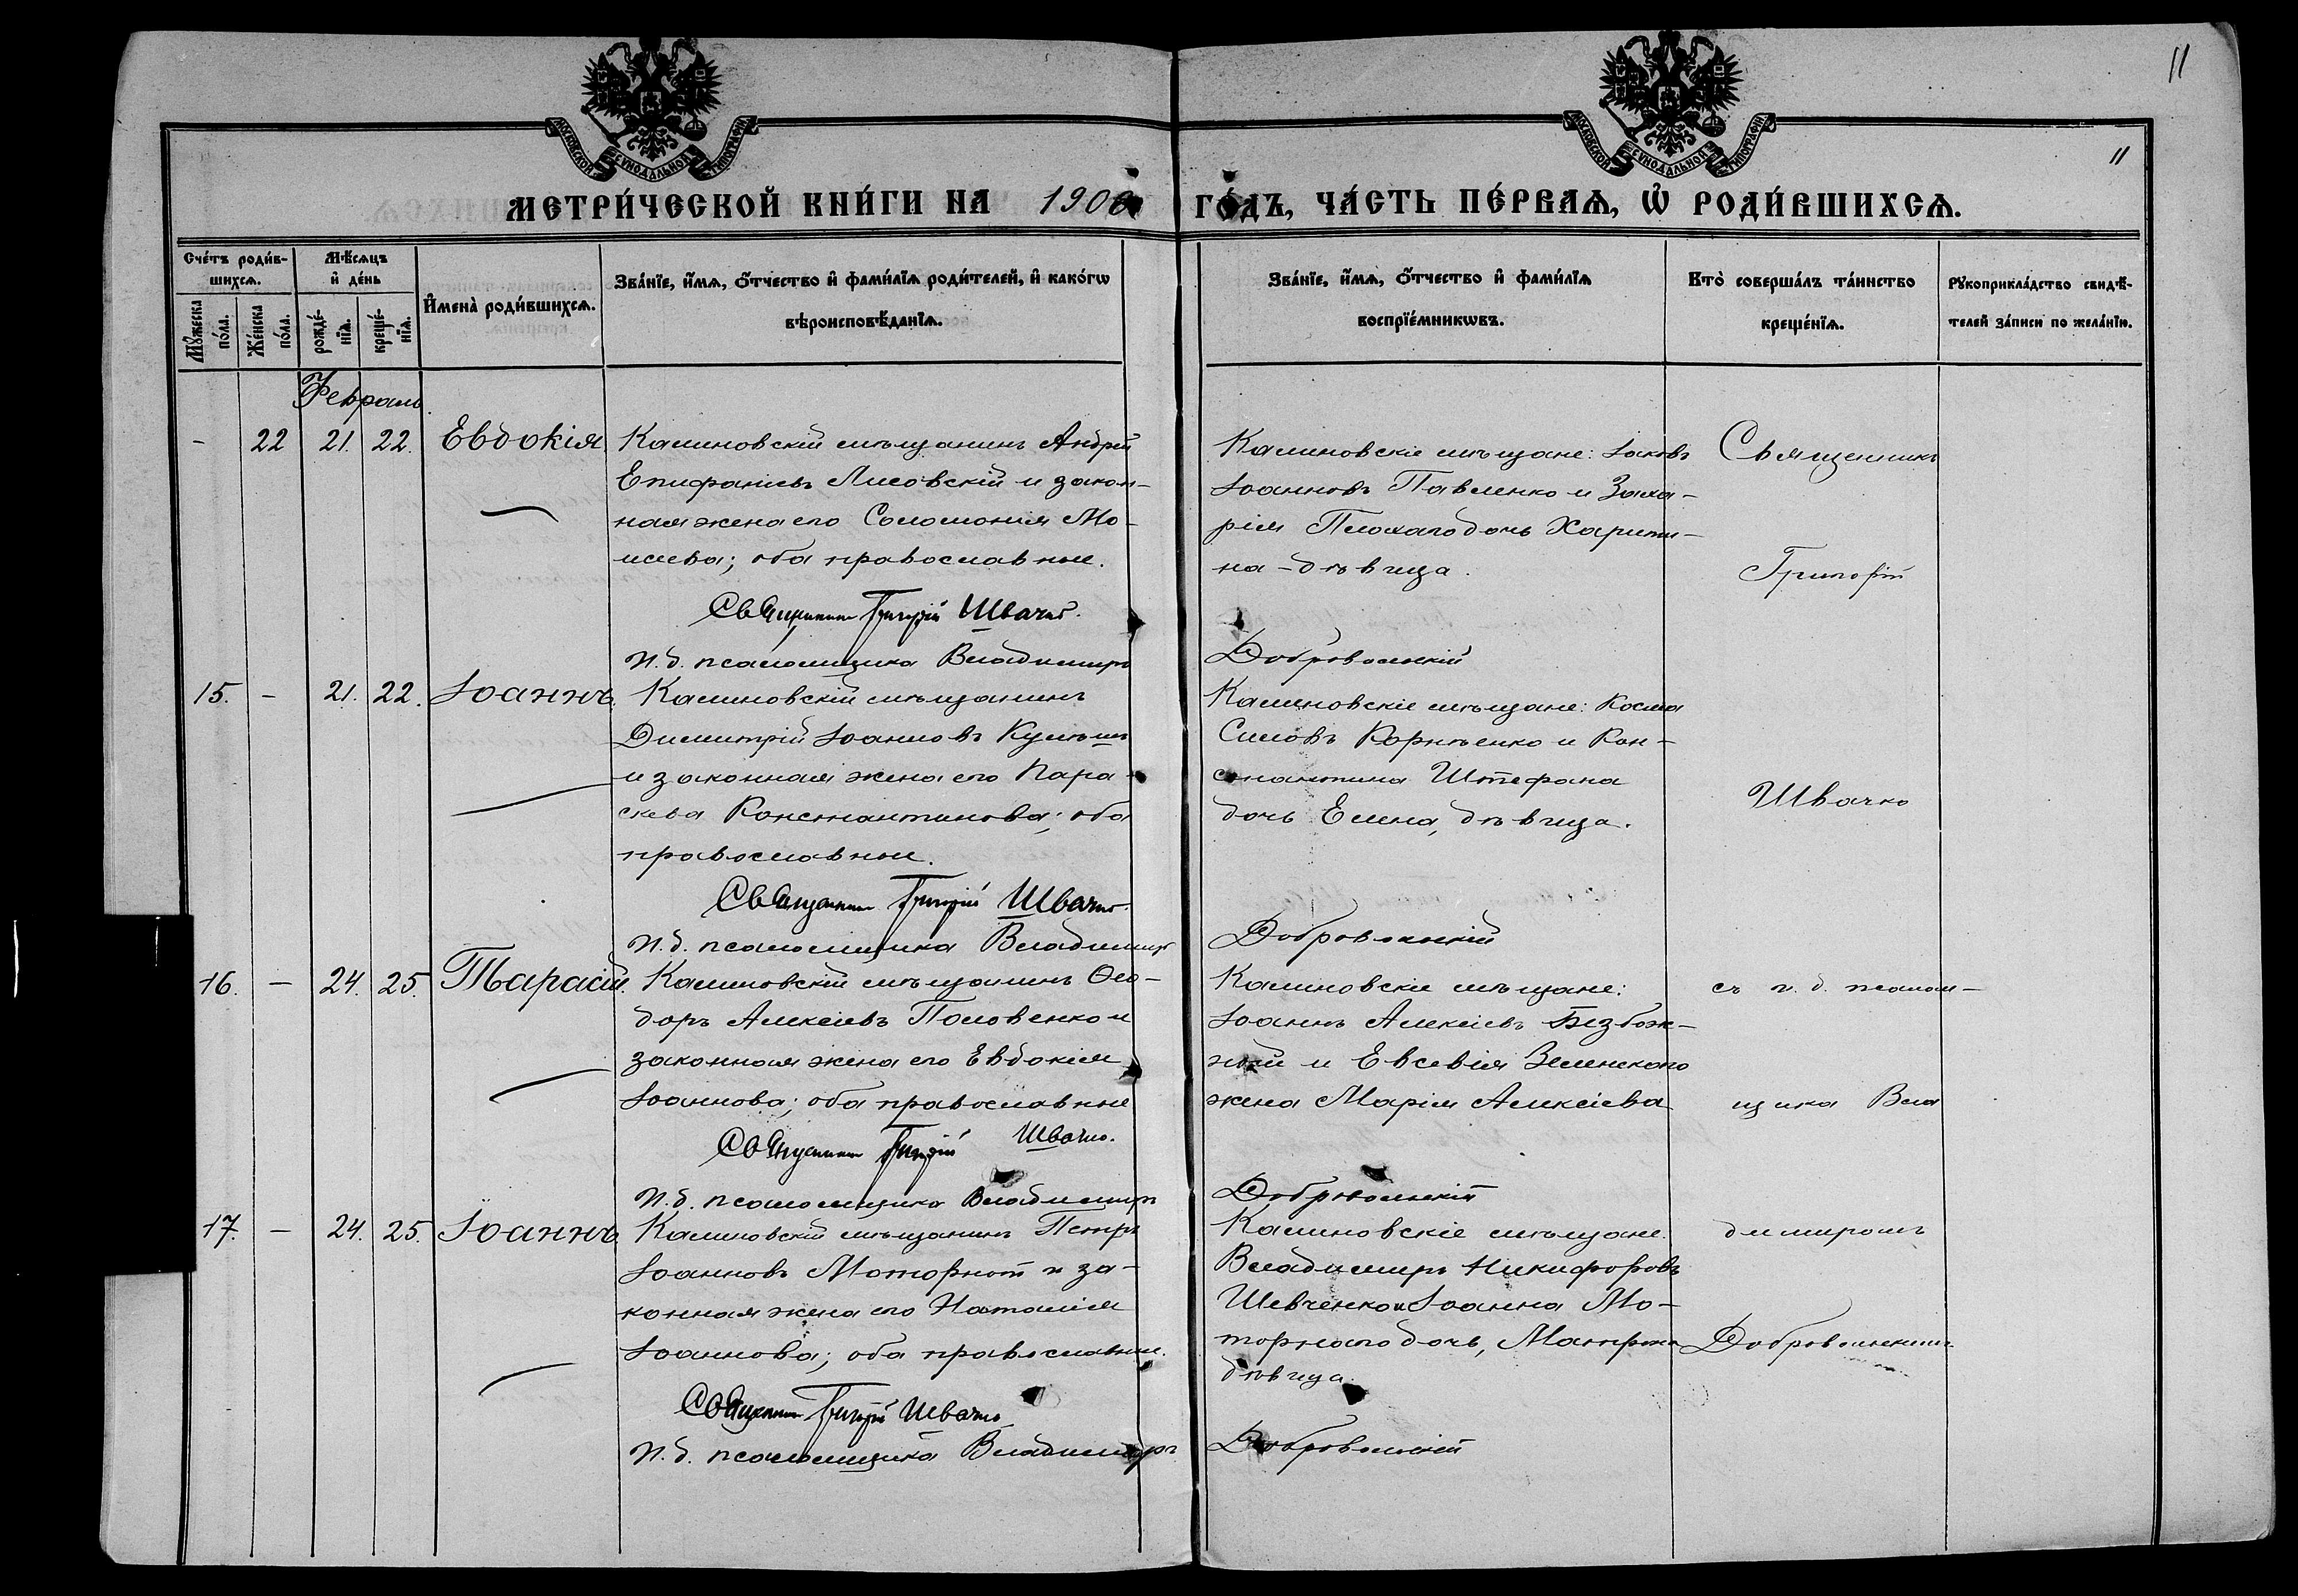 11
МОСКОВСКОЙ СѴНОДАЛЬНОЙ ТИПОГРАФІИ
МОСКОВСКОЙ СѴНОДАЛЬНОЙ ТИПОГРАФІИ
11
МЕТРИ́ЧЕСКОЙ КНИ́ГИ НА 1906 ГО́ДЪ, ЧА́СТЬ ПЕ́РВАѦ, Ѡ҆ РОДИ́ВШИХСѦ.
Сче́тъ роди́в-
шихсѧ.
Мꙋ́жеска по́ла.
Же́нска по́ла.
Мѣ́сѧцъ
и҆ де́нь
рожде́-нїѧ.
креще́-нїѧ.
И҆мена̀ роди́вшихсѧ.
Зва́нїе, и҆́мѧ, ѻ҆́тчество и҆ фами́лїѧ роди́телей, и҆ како́гѡ
вѣроисповѣ́данїѧ.
Зва́нїе, и҆́мѧ, ѻ҆́тчество и҆ фами́лїѧ
воспрїе́мникѡвъ.
Кто̀ соверша́лъ та́инство
креще́нїѧ.
Рꙋкоприкла́дство свидѣ́-
телей за́писи по жела́нїю.
Февраль.
- 22 21. 22. Евдокія
Калиновскій мѣщанинъ Андрей
Епифаніевъ Лисовскій и закон-
ная жена его Соломонія Мо-
исеева; оба православные.
Священникъ Григорій Швачко.
И. д. псаломщика Владимиръ Добровольскій
Калиновскіе мѣщане: Іаковъ
Іоанновъ Павленко и Заха-
рія Плохаго дочь Харити-
на - дѣвица.
15. - 21. 22. Іоаннъ.
Калиновскій мѣщанинъ
Димитрій Іоанновъ
и законная жена его Пара-
скева Константинова; оба
православные.
Священникъ Григорій Швачко.
И. д. псаломщика Владимиръ Добровольскій
Калиновскіе мѣщане: Косма
Силовъ Корнѣенко и Кон-
стантина Штефана
дочь Елена, дѣвица.
16. - 24. 25. Тарасій.
Калиновскій мѣщанинъ Ѳео-
доръ Алексіевъ Половенко и
законная жена его Евдокія
Іоаннова; оба православные
Священникъ Григорій Швачко.
И. д. псаломщика Владимиръ Добровольскій
Калиновскіе мѣщане:
Іоаннъ Алексіевъ Безбож-
ный и Евсевія Зеленского
жена Марія Алексіева
17. - 24. 25. Іоаннъ
Калиновскій мѣщанинъ Петръ
Іоанновъ Моторный и за-
конная жена его Наталія
Іоаннова; оба православные.
Священникъ Григорій Швачко
И. д. псаломщика Владимиръ Добровольскій
Калиновскіе мѣщане:
Владимиръ Никифоровъ
Шевченко и Іоанна Мо-
торнаго дочь, Матрона
дѣвица.
Священникъ
Григорій
Швачко
съ и. д. псалом-
щика Вла
димиромъ
Добровольскимъ